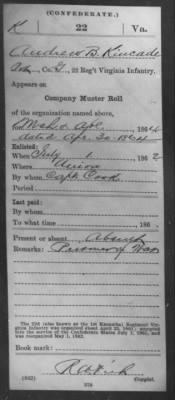 (CONFEDERATE.)
K 22 Va.
Andrew B. Kincade
, Co. G, 22 Reg't Virginia Infantry.
Appears on
Company Muster Roll
of the organization named above,
for Mch & Apl 1864
dated Apr. 30 1864
Enlisted:
When July 1, 1862
Where Union
By whom Capt. Cook
Period
Last paid:
By whom
To what time , 186 .
Present or absent Absent
Remarks: Prisoner of War
The 22d (also known as the 1st Kanawha) Regiment Virginia Infantry
into the service of the Confederate States July 1, 1861, and
was reorganized May 1, 1862.
Book mark:
(642) Copyist.